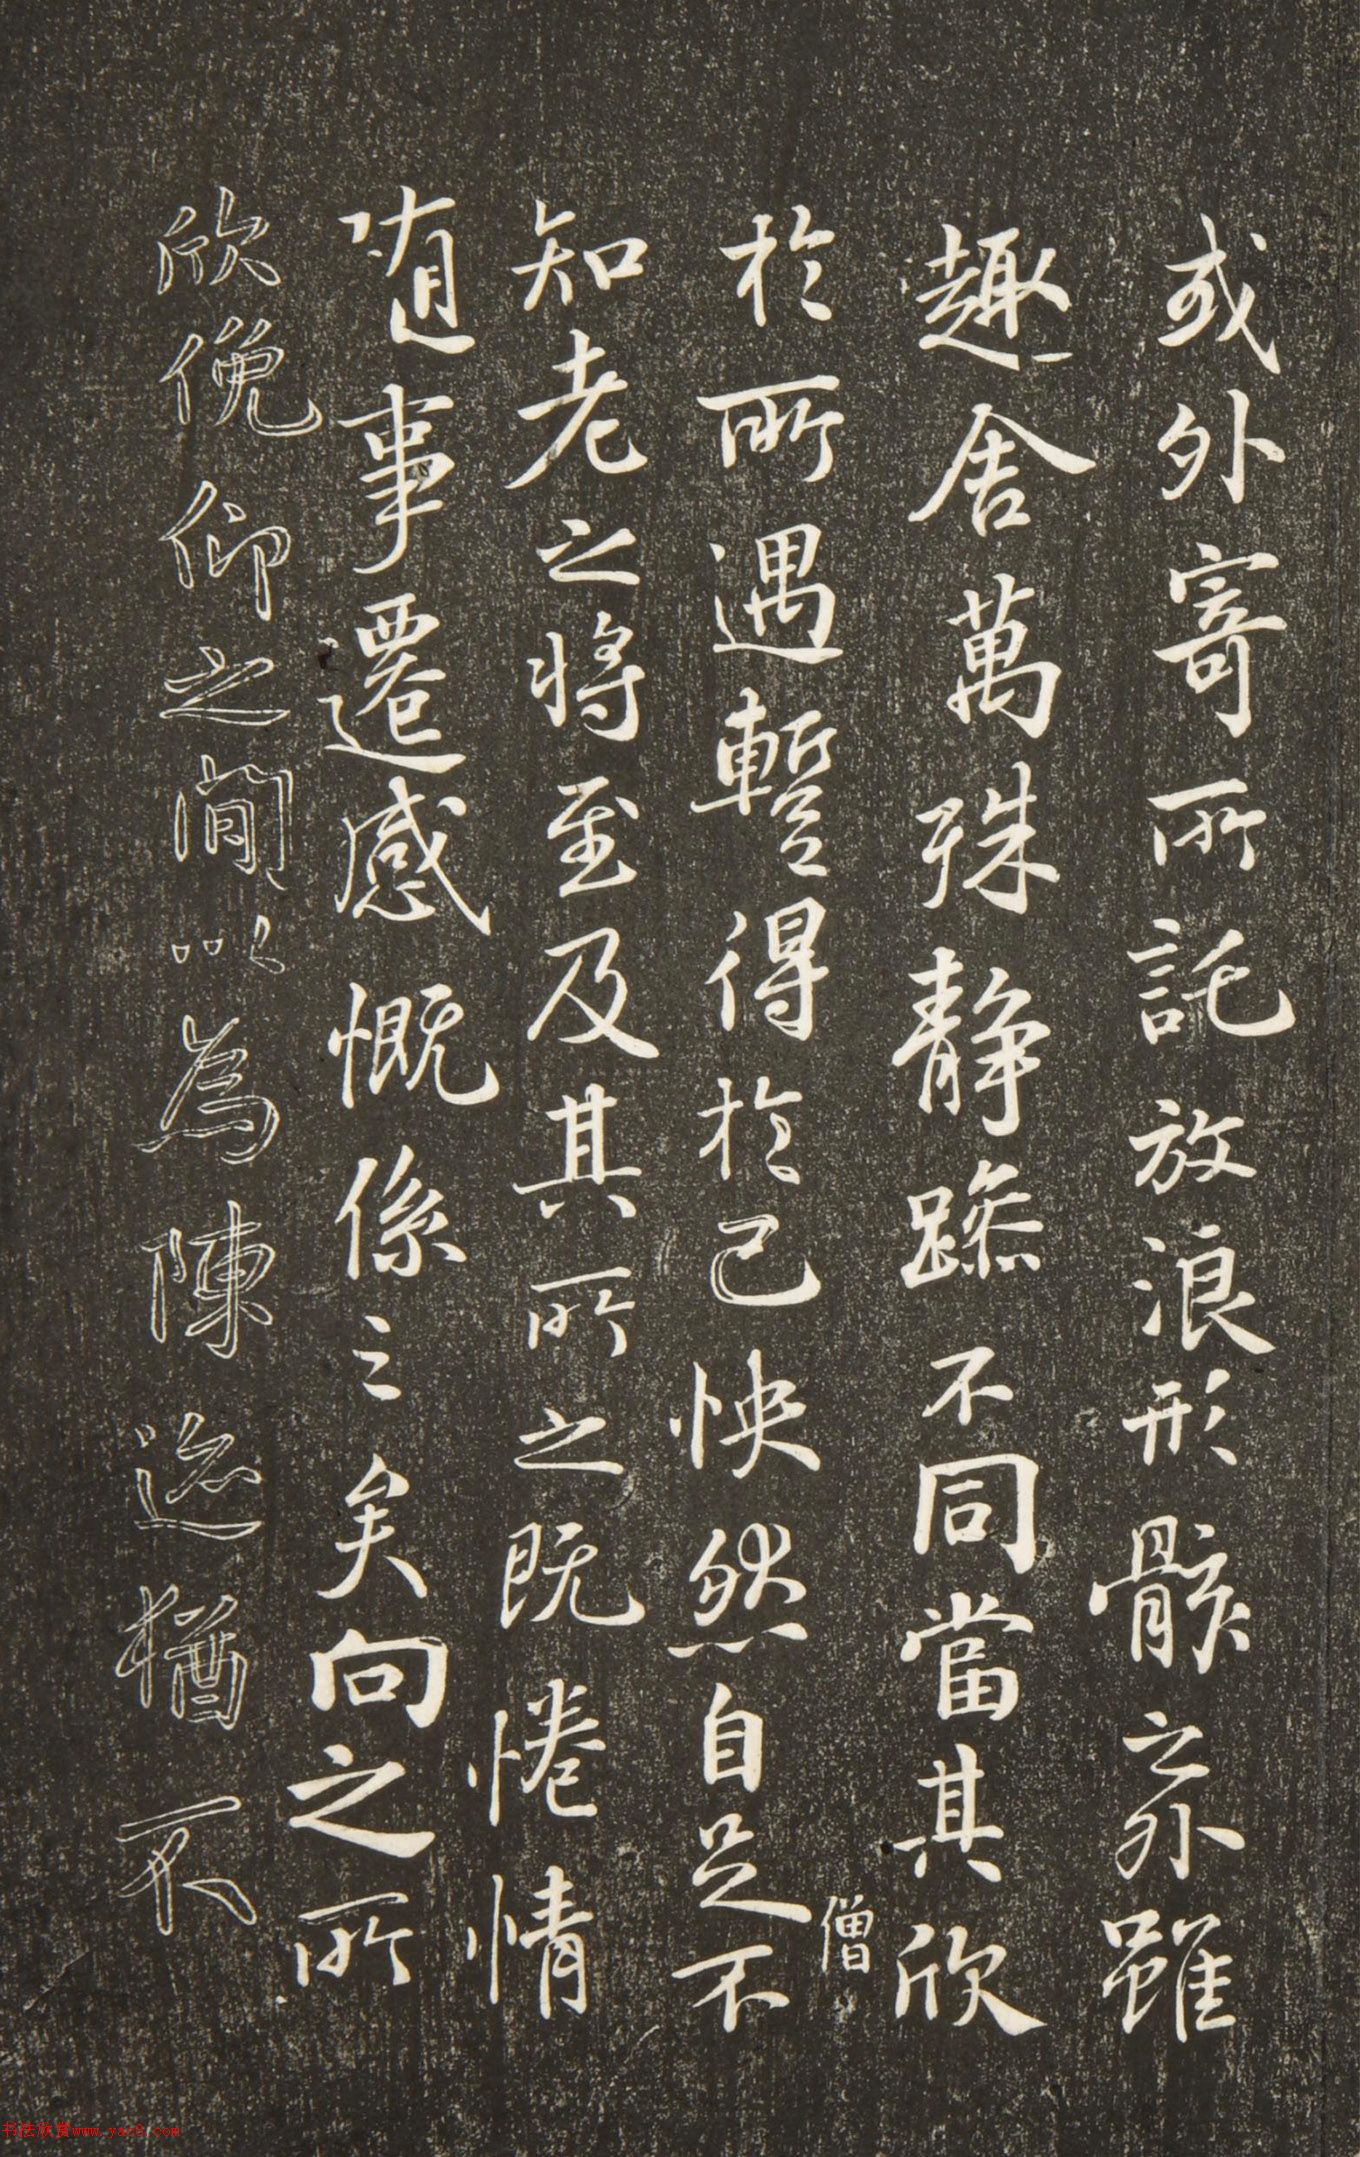 或外寄所託放浪形骸之外雖
趣舍萬殊静躁不同當其欣
僧
於所遇暫得於己怏然自足不
知老之將至及其所之既惓情
隨事遷感慨係之矣向之所
欣俛仰之間以為陳迹猶不
书法欣赏www.yac8.com